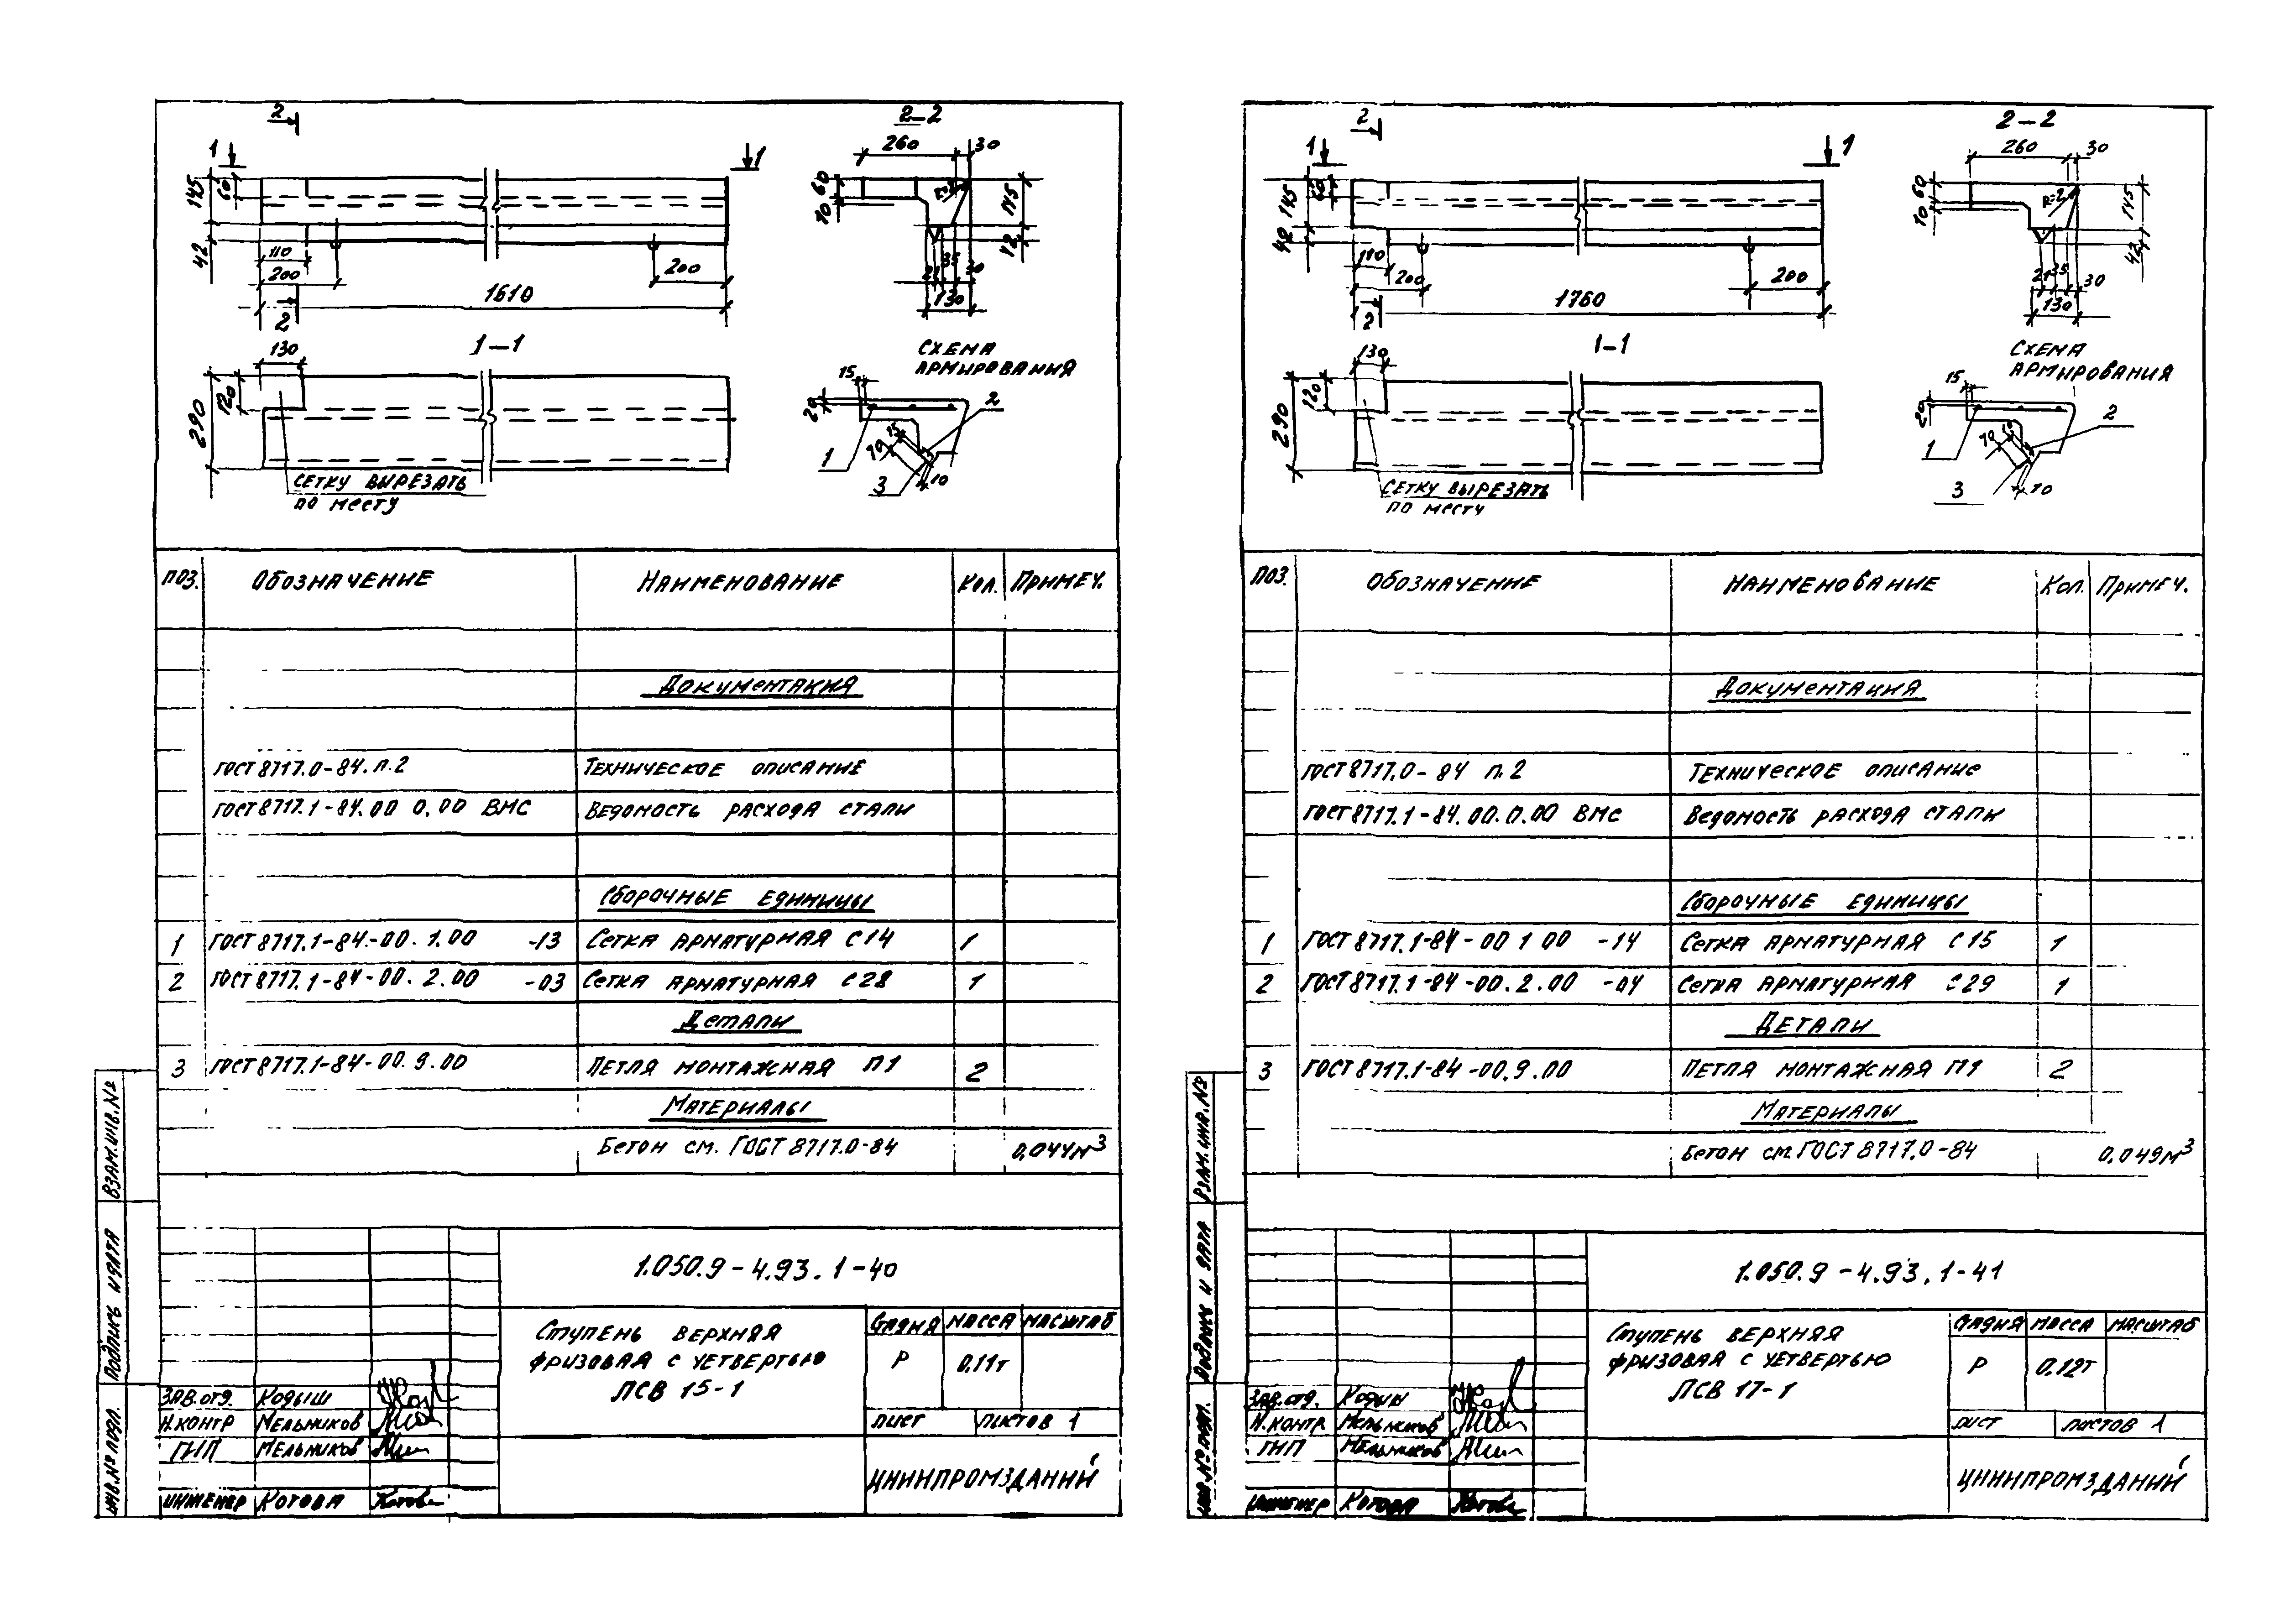 2
1
1
145
60
42
110
200
200
1610
2
2-2
260
30
60
10
R=2
145
42
21
35
30
130
1-1
130
290
120
СЕТКУ ВЫРЕЗАТЬ
ПО МЕСТУ
СХЕМА
АРМИРОВАНИЯ
15
20
1
2
15
70
10
3
ПОЗ. ОБОЗНАЧЕНИЕ НАИМЕНОВАНИЕ КОЛ. ПРИМЕЧ.
ДОКУМЕНТАЦИЯ
ГОСТ 8717.0-84. п.2 ТЕХНИЧЕСКОЕ ОПИСАНИЕ
ГОСТ 8717.1-84.00 0.00 ВМС ВЕДОМОСТЬ РАСХОДА СТАЛИ
СБОРОЧНЫЕ ЕДИНИЦЫ
1 ГОСТ 8717.1-84-00.1.00 -13 СЕТКА АРМАТУРНАЯ С14 1
2 ГОСТ 8717.1-84-00.2.00 -03 СЕТКА АРМАТУРНАЯ С28 1
ДЕТАЛИ
3 ГОСТ 8717.1-84-00.9.00 ПЕТЛЯ МОНТАЖНАЯ П1 2
МАТЕРИАЛЫ
БЕТОН СМ. ГОСТ 8717.0-84 0,044м³
1.050.9-4.93.1-40
СТУПЕНЬ ВЕРХНЯЯ
ФРИЗОВАЯ С ЧЕТВЕРТЬЮ
ЛСВ 15-1
СТАДИЯ МАССА МАСШТАБ
Р 0,11т
ЛИСТ ЛИСТОВ 1
ЦНИИПРОМЗДАНИЙ
ЗАВ.ОТД. КОДЫШ
Н.КОНТР МЕЛЬНИКОВ
ГИП МЕЛЬНИКОВ
ИНЖЕНЕР КОТОВА
ВЗАМ.ИНВ.№
ПОДПИСЬ И ДАТА
ИНВ.№ ПОДЛ.
2
1
1
145
60
42
110
200
200
1760
2
2-2
260
30
60
10
R=2
145
42
21
35
30
130
1-1
130
290
120
СЕТКУ ВЫРЕЗАТЬ
ПО МЕСТУ
СХЕМА
АРМИРОВАНИЯ
15
20
1
2
70
10
3
ПОЗ. ОБОЗНАЧЕНИЕ НАИМЕНОВАНИЕ КОЛ. ПРИМЕЧ.
ДОКУМЕНТАЦИЯ
ГОСТ 8717.0-84 п.2 ТЕХНИЧЕСКОЕ ОПИСАНИЕ
ГОСТ 8717.1-84.00.0.00 ВМС ВЕДОМОСТЬ РАСХОДА СТАЛИ
СБОРОЧНЫЕ ЕДИНИЦЫ
1 ГОСТ 8717.1-84-00 1 00 -14 СЕТКА АРМАТУРНАЯ С15 1
2 ГОСТ 8717.1-84-00.2.00 -04 СЕТКА АРМАТУРНАЯ С29 1
ДЕТАЛИ
3 ГОСТ 8717.1-84-00.9.00 ПЕТЛЯ МОНТАЖНАЯ П1 2
МАТЕРИАЛЫ
БЕТОН СМ. ГОСТ 8717.0-84 0,049м³
1.050.9-4.93.1-41
СТУПЕНЬ ВЕРХНЯЯ
ФРИЗОВАЯ С ЧЕТВЕРТЬЮ
ЛСВ 17-1
СТАДИЯ МАССА МАСШТАБ
Р 0,12т
ЛИСТ ЛИСТОВ 1
ЦНИИПРОМЗДАНИЙ
ЗАВ.ОТД. КОДЫШ
Н.КОНТР МЕЛЬНИКОВ
ГИП МЕЛЬНИКОВ
ИНЖЕНЕР КОТОВА
ВЗАМ.ИНВ.№
ПОДПИСЬ И ДАТА
ИНВ.№ ПОДЛ.